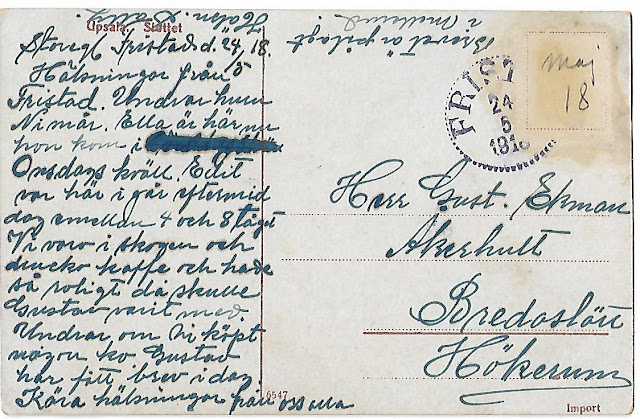 Upsala. Slottet
Storegl Fristad d. 24/5 18.
Hälsningar från
Fristad. Undrar huru
Ni mår. Ella är här nu
hon kom i
Onsdags kväll. Edit
var här i går eftermid
dag emellan 4 och 8 tåget
Vi voro i skogen och
drucko kaffe och hade
så roligt då skulle
Gustav varit med.
Undrar om Ni köpt
någon ko Gustav
har fått brev i dag
Kära hälsningar från oss alla
Brevet är pålagt
i
FRIST
24
5
1918
Maj
18
Herr Gust. Ekman
Åkerhult
Bredaslätt
Hökerum
6547
Import